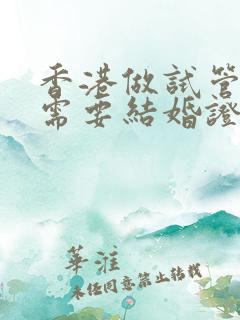 香港做試管
需要結婚證
華雅
未经同意禁止转载